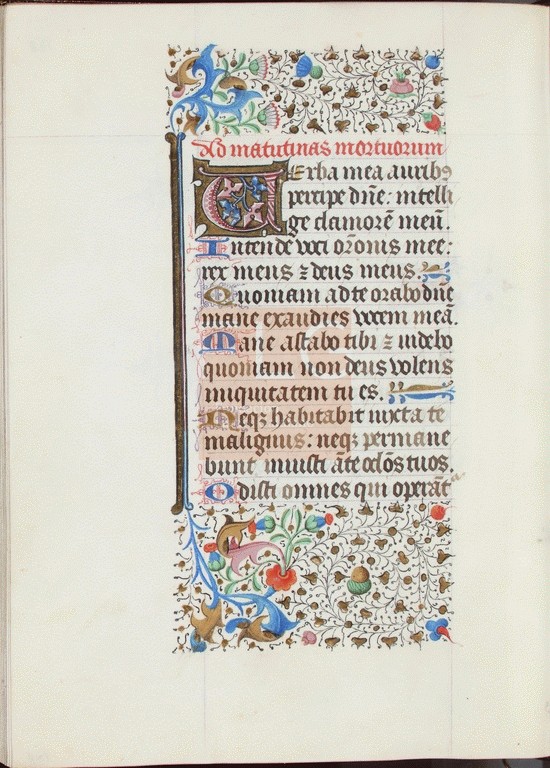 Ad matutinas mortuorum
Verba mea auribꝰ
percipe dñe: intelli
ge clamorē meū.
Intende voci orōnis mee:
rex meus ⁊ deus meus.
Quoniam ad te orabo dñe
mane exaudies vocem meā.
Mane astabo tibi ⁊ videbo
quoniam non deus volens
iniquitatem tu es.
Neqꝫ habitabit iuxta te
malignus: neqꝫ permane
bunt iniusti āte oc̄los tuos.
Odisti omnes qui operāt